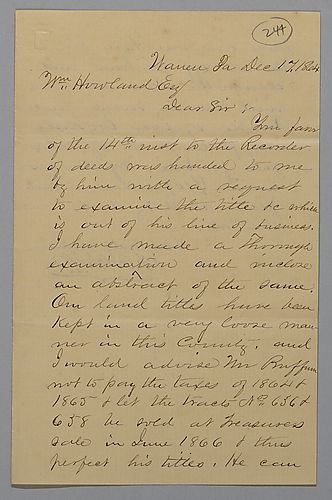 244
Warren Pa Dec 17, 1864
Wm Howland Esq
Dear Sir
Your favor
of the 14th inst to the Recorder
of deeds was handed to me
by him with a request
to examine the title &c which
is out of his line of business.
I have made a thorough
examination and inclose
an abstract of the same.
Our land titles have been
Kept in a very loose man
ner in this County. and
I would advise Mr Buffum
not to pay the taxes of 1864 &
1865 & let the tracts No. 656 &
658 be sold at Treasurers
sale in June 1866 & thus
perfect his titles. He can